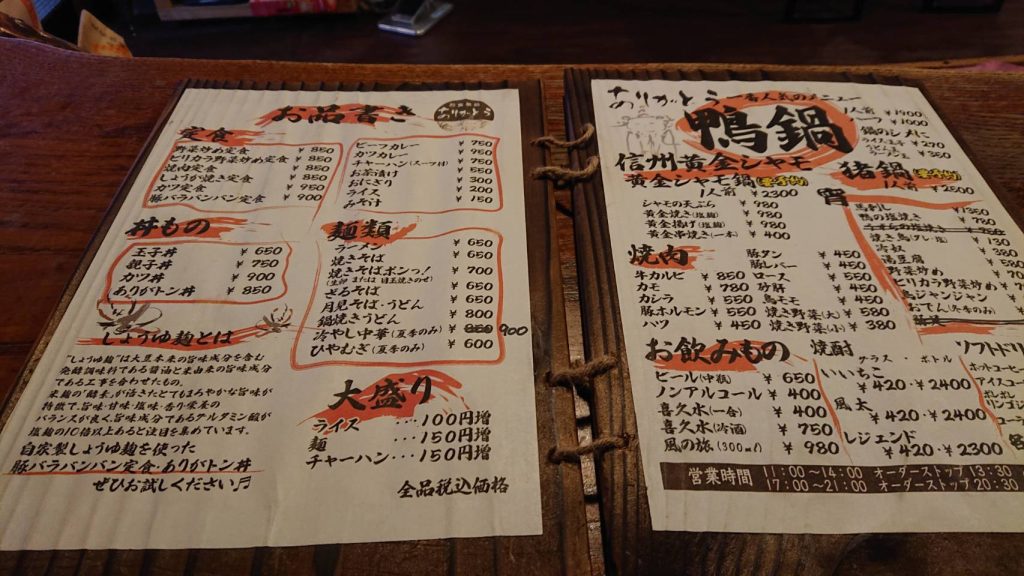 お品書き
ありがとう
定食
野菜炒め定食 ¥850
ピリカラ野菜炒め定食 ¥850
焼肉定食 ¥850
しょうが焼き定食 ¥850
カツ定食 ¥950
豚バラバンバン定食 ¥900
ビーフカレー ¥750
カツカレー ¥950
チャーハン(スープ付) ¥750
お茶漬け ¥550
おにぎり ¥300
ライス ¥200
みそ汁 ¥150
丼もの
玉子丼 ¥650
親子丼 ¥750
カツ丼 ¥900
ありがトン丼 ¥850
麺類
ラーメン ¥650
焼きそば ¥650
焼きそばボンっ! ¥700
(生卵 または 目玉焼きのせ)
ざるそば ¥650
月見そば・うどん ¥650
鍋焼きうどん ¥800
冷やし中華(夏季のみ) ¥850 900
ひやむぎ(夏季のみ) ¥600
しょうゆ麹とは
"しょうゆ麹"は大豆本来の旨味成分を含む
発酵調味料である醤油と米由来の旨味成分
である工事を合わせたもの。
米麹の「酵素」が活きたとてもまろやかな旨味が
特徴で、旨味・甘味・塩味・香り栄養の
バランスが良く旨味成分であるグルタミン酸が
塩麹の10倍以上あると注目を集めています。
自家製しょうゆ麹を使った
豚バラバンバン定食・ありがトン丼
ぜひお試しください♬
大盛り
ライス ・・・100円増
麺 ・・・150円増
チャーハン・・・150円増
全品税込価格
ありがとう
鴨鍋
信州黄金シャモ
黄金シャモ鍋
1人前 ¥2300
シャモの天ぷら ¥980
黄金焼き(塩麹) ¥980
黄金揚げ(塩麹) ¥980
黄金串焼き(一本) ¥400
鍋のシメに
¥270
¥350
猪鍋
1人前 ¥2500
鴨の塩焼き ¥780
焼き鳥(タレ・塩) ¥130
¥380
湯豆腐
野菜炒め
ピリカラ野菜炒め
鳥ジャンジャン
おでん(冬季のみ)
焼肉
牛カルビ ¥850
カモ ¥780
カシラ ¥550
豚ホルモン ¥550
ハツ ¥450
豚タン ¥450
豚レバー ¥450
ロース ¥550
砂肝 ¥450
鳥モモ ¥450
焼き野菜(大) ¥580
焼き野菜(小) ¥380
お飲みもの
ビール(中瓶) ¥650
ノンアルコール ¥400
喜久水(一合) ¥400
喜久水(吟酒) ¥750
風の旅(300ml) ¥980
焼酎
グラス・ボトル
いいちこ
¥420・¥2400
風太
¥420・¥2400
レジェンド
¥420・¥2300
ソフトドリ
ホットコーヒー
アイスコー
営業時間 11:00〜14:00 オーダーストップ 13:30
17:00〜21:00 オーダーストップ 20:30